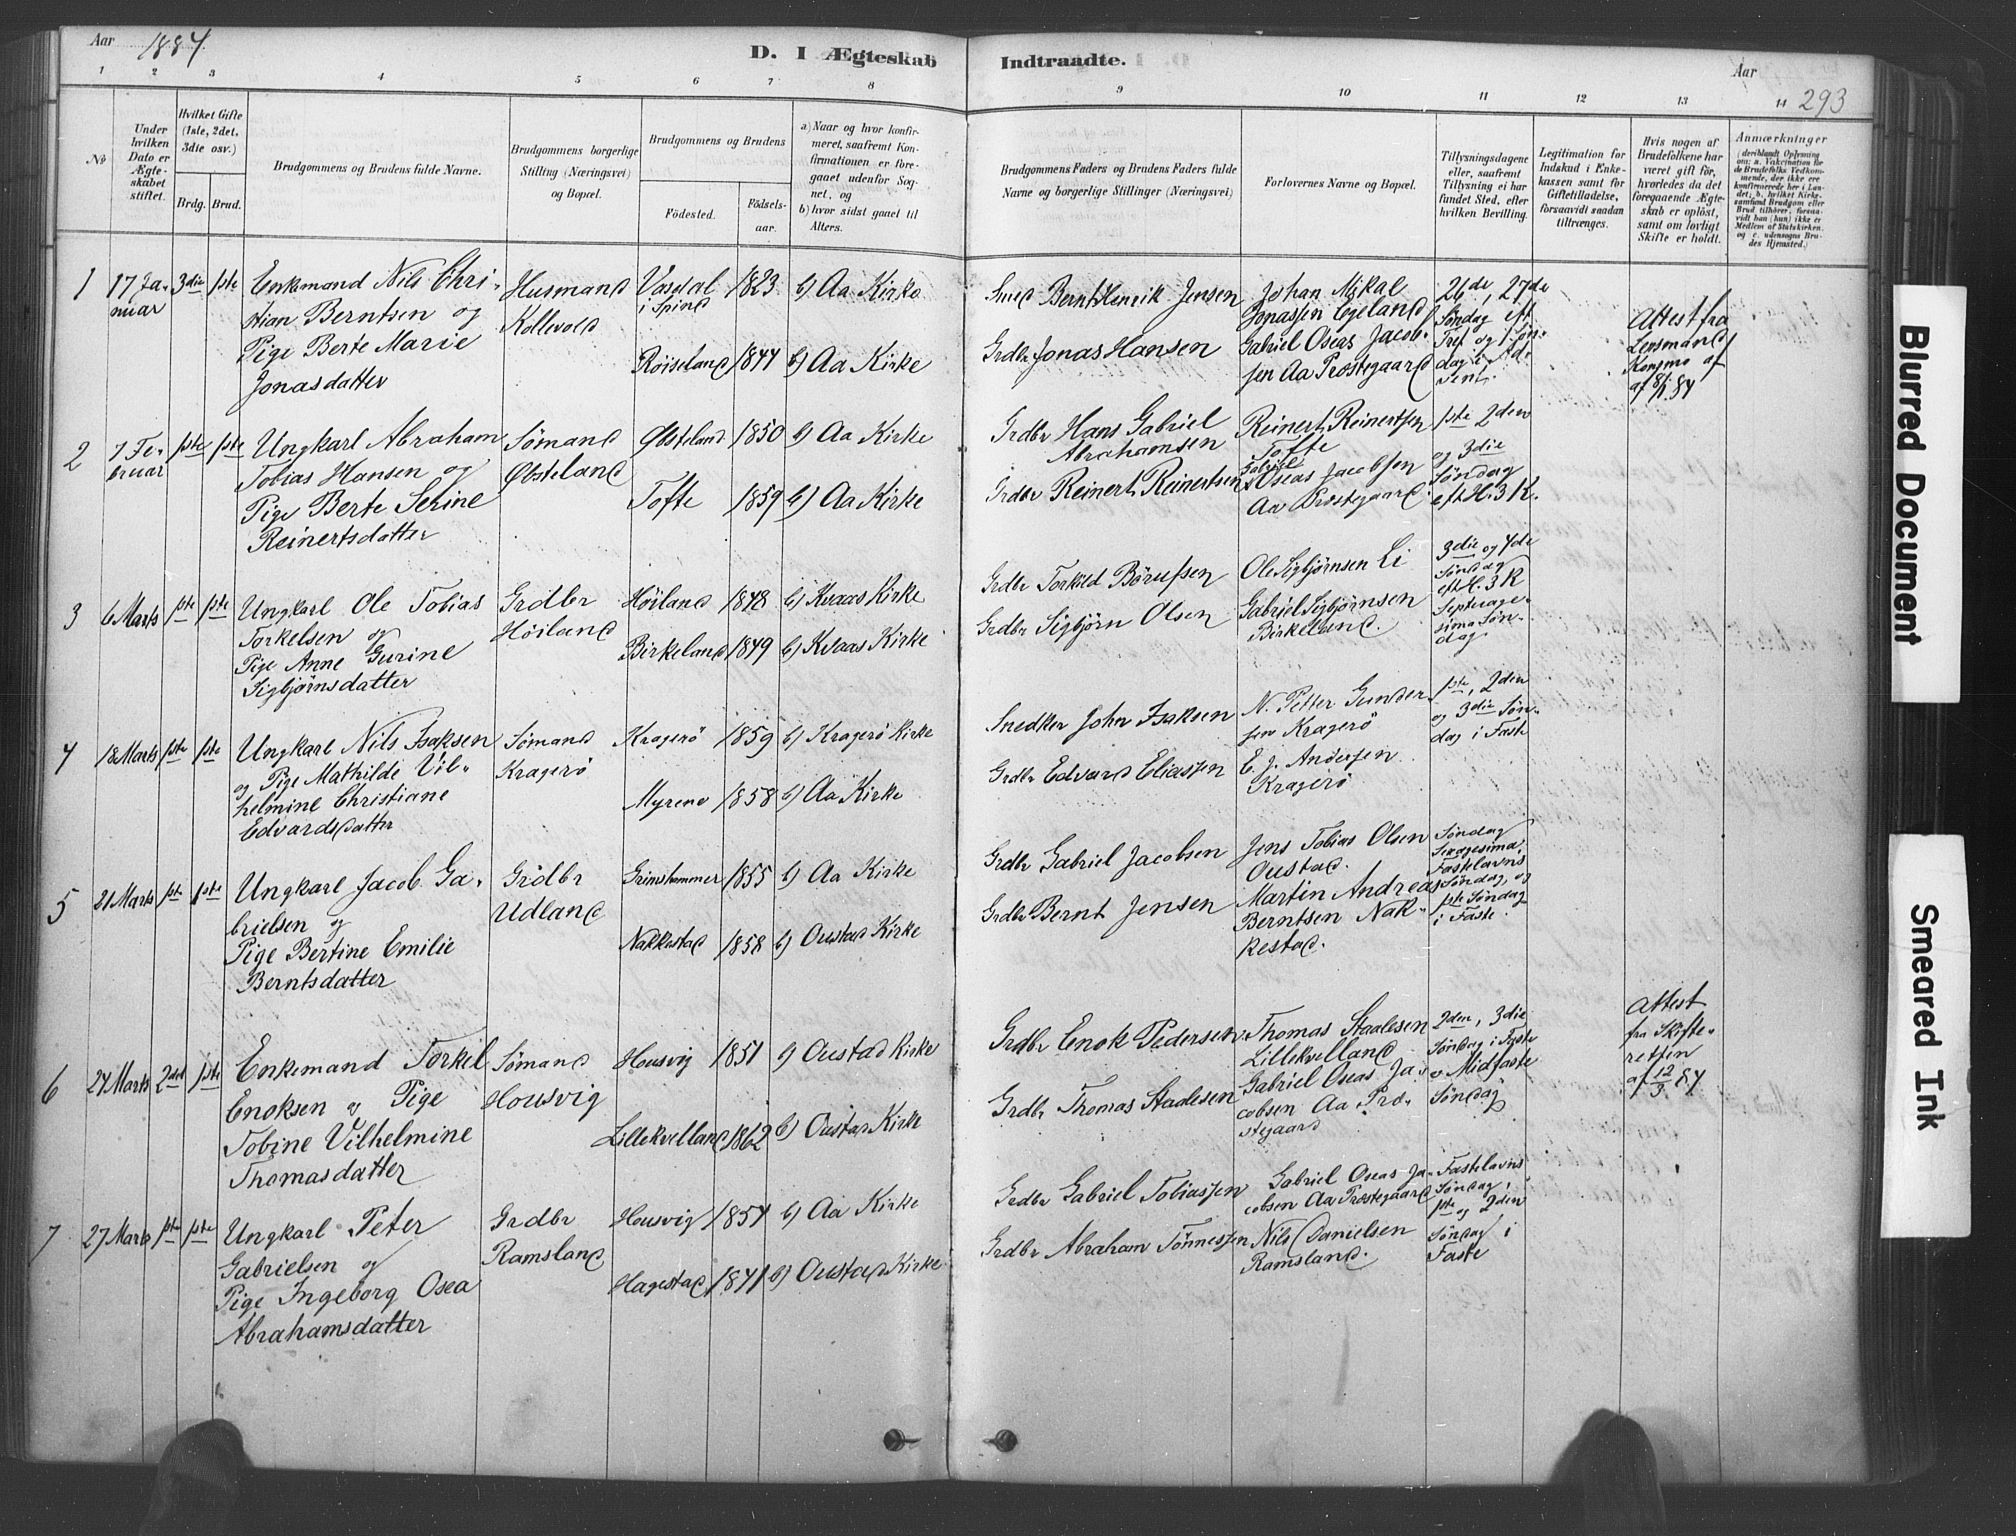 Aar 1884
D. I Ægteskab Indtraadte.
Aar
293
1 2 3 4 5 6 7 8 9 10 11 12 13 14
No
Under hvilken Dato er Ægteskabet stiftet.
Hvilket Gifte (1ste, 2det, 3die osv.)
Brdg. Brud.
Brudgommens og Brudens fulde Navne.
Brudgommens borgerlige Stilling (Næringsvei) og Bopæl.
Brudgommens og Brudens
Födested.
Födsels-aar.
a) Naar og hvor konfirmeret, saafremt Konfirmationen er foregaaet udenfor Sognet, og
b) hvor sidst gaaet til Alters.
Brudgommens Faders og Brudens Faders fulde Navne og borgerlige Stillinger (Næringsvei)
Forlovernes Navne og Bopæl.
Tillysningsdagene eller, saafremt Tillysning ei har fundet Sted, efter hvilken Bevilling.
Legitimation for Indskud i Enkekassen samt for Giftetilladelse, forsaavidt saadan tiltrænges.
Hvis nogen af Brudefolkene har været gift för, hvorledes da det foregaaende Ægteskab er oplöst, samt om lovligt Skifte er holdt.
Anmærkninger
(deriblandt Oplysning om: a. Vakcination for de Brudefolks Vedkommende, der ikke ere konfirmerede her i Landet; b. hvilket Kirkesamfund Brudgom eller Brud tilhörer, forsaavidt han (hun) ikke er Medlem af Statskirken, og c. udensogns Brudes Hjemsted.)
1 17 Januar 3die 1ste
Enkemand Nils Chri-
stian Berntsen og
Pige Berte Marie
Jonasdatter
Husmand
Kollevold
Vasdal i Spind 1823 b) Aa Kirke
Röiseland 1844 b) Aa Kirke
Smed Bernt Henrik Jensen
Grdbr Jonas Hansen
Johan Mikal
Jonassen Egeland
Gabriel Oseas Jacob-
sen Aa Præstegaard
26de, 27de
Söndag eft
Tref og 1 Sön-
dag e
Attest fra
Lensmand
Kongmo af
af 8/1 84
2 7 Februar 1ste 1ste
Ungkarl Abraham
Tobias Hansen og
Pige Berte Serine
Reinertsdatter
Sømand
Øbsteland
Øbsteland 1850 b) Aa Kirke
Tofte 1859 b) Aa Kirke
Grdbr Hans Gabriel
Abrahamsen
Grdbr Reinert Reinertsen
Reinert Reinertsen
Tofte
Gabriel
Oseas Jacobsen
Aa Præstegaard
1ste 2den
og 3die
Söndag
eft H. 3 K.
3 6 Marts 1ste 1ste
Ungkarl Ole Tobias
Torkelsen og
Pige Anne Gurine
Sigbjørnsdatter
Grdbr
Höiland
Höiland 1848 b) Kvaas Kirke
Birkeland 1849 b) Kvaas Kirke
Grdbr Torkild Börufsen
Grdbr Sigbjörn Olsen
Ole Sigbjørnsen Li
Gabriel Sigbjørnsen
Birkeland.
3die og 4de
Söndag
eft H. 3 K
Septuage-
sima Søn-
dag
4 18 Marts 1ste 1ste
Ungkarl Nils Isaksen
og Pige Mathilde Vil-
helmine Christiane
Edvardsdatter
Sømand
Kragerö
Kragerö 1859 b) Kragerö Kirke
Myrene 1858 b) Aa Kirke
Snedker John Isaksen
Grdbr Edvard Eliassen
N. Petter Gunder-
sen Kragerö
E. J. Andersen
Kragerö
1ste, 2den
og 3die Søn-
dag i Faste
5 21 Marts 1ste 1ste
Ungkarl Jacob Ga-
brielsen og
Pige Bertine Emilie
Berntsdatter
Grdbr
Udland
Grimshammer 1855 b) Aa Kirke
Nakkestad 1858 b) Oustad Kirke
Grdbr Gabriel Jacobsen
Grdbr Bernt Jensen
Jens Tobias Olsen
Oustad.
Martin Andreas
Berntsen Nak-
kestad.
Söndag
Sexagesima,
Fastelavns
Söndag, og
1ste Söndag
i Faste.
6 24 Marts 2det 1ste
Enkemand Torkil
Enoksen og Pige
Tobine Vilhelmine
Thomasdatter
Sømand
Housvig
Housvig 1851 b) Oustad Kirke
Lillekvelland 1862 b) Oustad Kirke
Grdbr Enok Pedersen
Grdbr Thomas Staalesen
Thomas Staalesen
Lillekvelland
Gabriel Oseas Ja-
cobsen Aa Præ-
stegaard
2den, 3die
Söndag i Faste
o Midfaste
Söndag
Attest
fra Skifte-
retten
af 12/3 84
7 27 Marts 1ste 1ste
Ungkarl Peter
Gabrielsen og
Pige Ingeborg Osea
Abrahamsdatter
Grdbr
Ramsland
Housvig 1854 b) Aa Kirke
Hagestad 1841 b) Oustad Kirke
Grdbr Gabriel Tobiassen
Grdbr Abraham Tönnessen
Gabriel Oseas Ja-
cobsen Aa Præstegaard
Nils Danielsen
Ramsland.
Fastelavns
Söndag,
1ste og 2den
Söndag i
Faste
Blurred Document
Smeared Ink